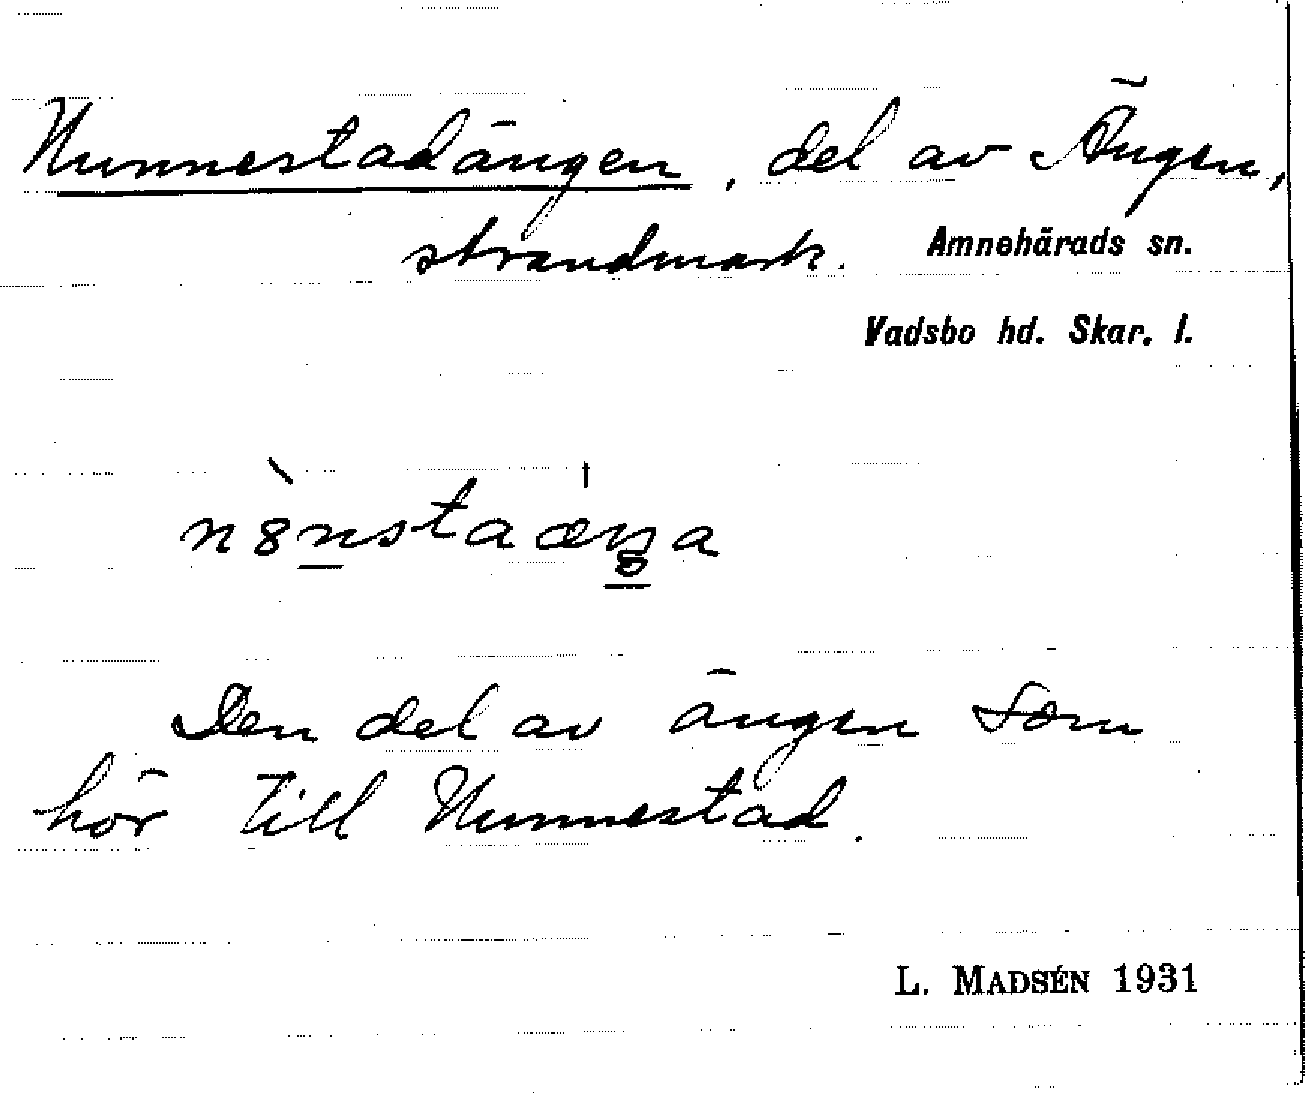 Nunnestadängen, del av Ängen,
strandmark.
Amnehärads sn.
Vadsbo hd. Skar. l.
Den del av ängen som
hör till Nunnestad.
L. MADSÉN 1931